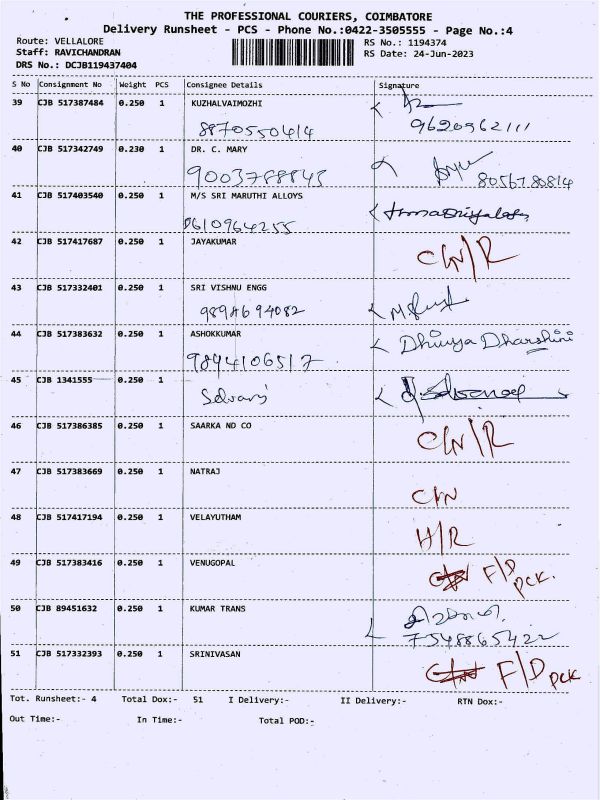 THE PROFESSIONAL COURIERS, COIMBATORE
Delivery Runsheet - PCS - Phone No.:0422-3505555 - Page No.:4
Route: VELLALORE RS No.: 1194374
Staff: RAVICHANDRAN RS Date: 24-Jun-2023
DRS No.: DCJB119437404
S No Consignment No Weight PCS Consignee Details Signature
39 CJB 517387484 0.250 1 KUZHALVAIMOZHI
8870550414 9620962111
40 CJB 517342749 0.230 1 DR. C. MARY
9003788843 8056780814
41 CJB 517403540 0.250 1 M/S SRI MARUTHI ALLOYS
9610964255
42 CJB 517417687 0.250 1 JAYAKUMAR CN/R
43 CJB 517332401 0.250 1 SRI VISHNU ENGG
9894694082
44 CJB 517383632 0.250 1 ASHOKKUMAR Dhivya Dharshini
9894106517
45 CJB 1341555 0.250 1
Selvaraj
46 CJB 517386385 0.250 1 SAARKA ND CO CN/R
47 CJB 517383669 0.250 1 NATRAJ CN
48 CJB 517417194 0.250 1 VELAYUTHAM H/R
49 CJB 517383416 0.250 1 VENUGOPAL F/D pck.
50 CJB 89451632 0.250 1 KUMAR TRANS
7548865422
51 CJB 517332393 0.250 1 SRINIVASAN F/D pck
Tot. Runsheet:- 4 Total Dox:- 51 I Delivery:- II Delivery:- RTN Dox:-
Out Time:- In Time:- Total POD:-